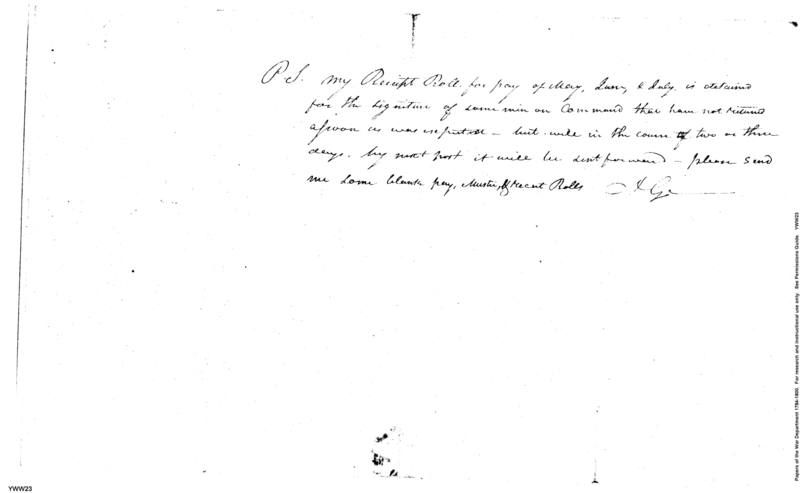 P.S. my Receipt Roll for pay of May, June, & July. is detained
for the signature of some men on Command that have not returned
as soon as was expected – but will in the course of two or three
days. by next post it will be sent forward – please send
me some blank pay, Muster, & Receipt Rolls
Papers of the War Department 1784-1800. For research and instructional use only. See Permissions Guide. YWW23
YWW23